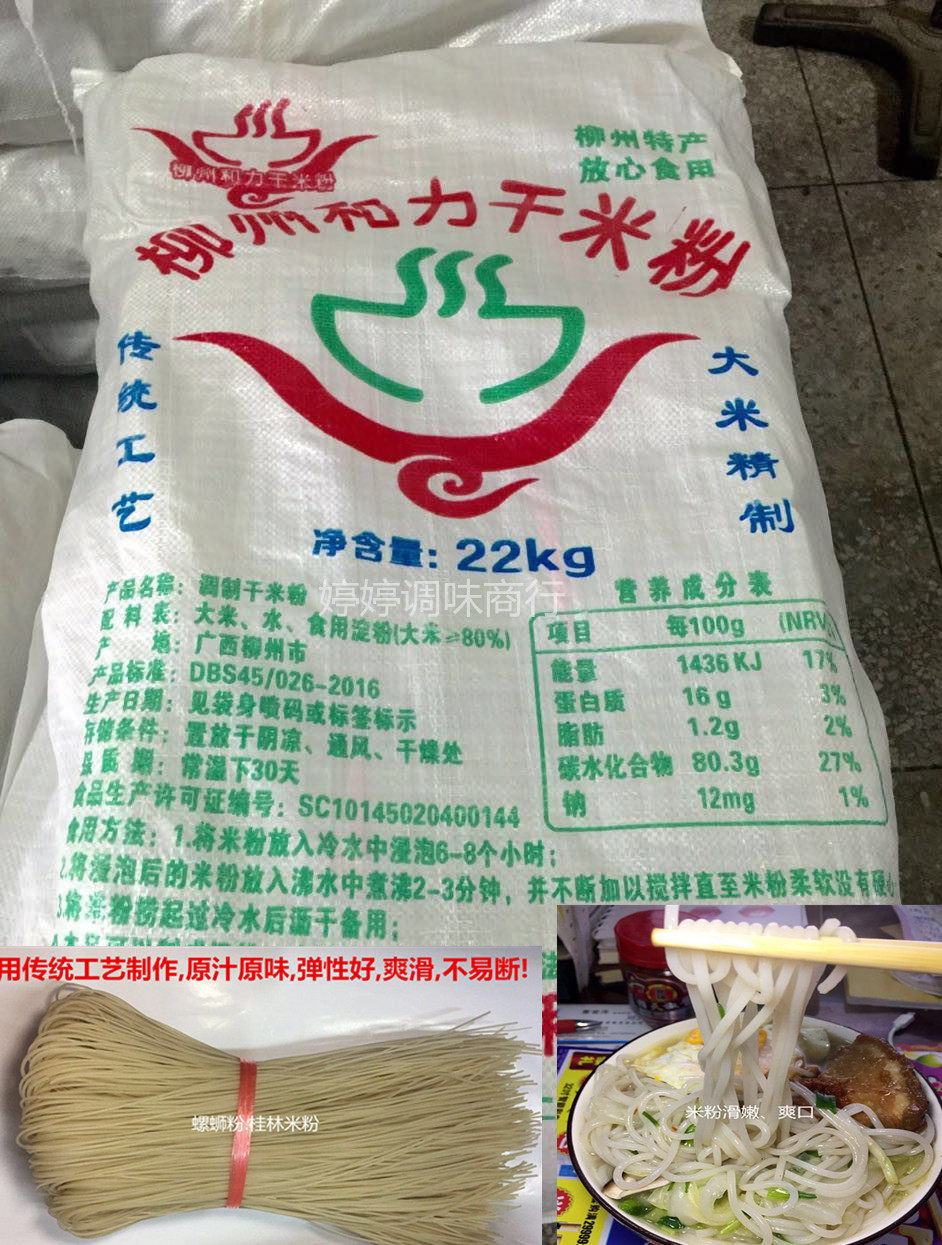 柳州特产
放心食用
柳州和力干米粉
柳州和力干米粉
传统工艺
大米精制
净含量: 22kg
婷婷调味商行
产品名称: 调制干米粉
配料表: 大米、水、食用淀粉(大米≥80%)
产地: 广西柳州市
产品标准: DBS45/026-2016
生产日期: 见袋身喷码或标签标示
存储条件: 置放于阴凉、通风、干燥处
保质期: 常温下30天
食品生产许可证编号: SC10145020400144
营养成分表
项目 每100g (NRV
能量 1436KJ 17%
蛋白质 16g 3%
脂肪 1.2g 2%
碳水化合物 80.3g 27%
钠 12mg 1%
食用方法: 1.将米粉放入冷水中浸泡6-8个小时;
2.将浸泡后的米粉放入沸水中煮沸2-3分钟, 并不断加以搅拌直至米粉柔软没有硬心
3.将米粉捞起过冷水后沥干备用;
用传统工艺制作,原汁原味,弹性好,爽滑,不易断!
螺蛳粉.桂林米粉
米粉滑嫩、爽口